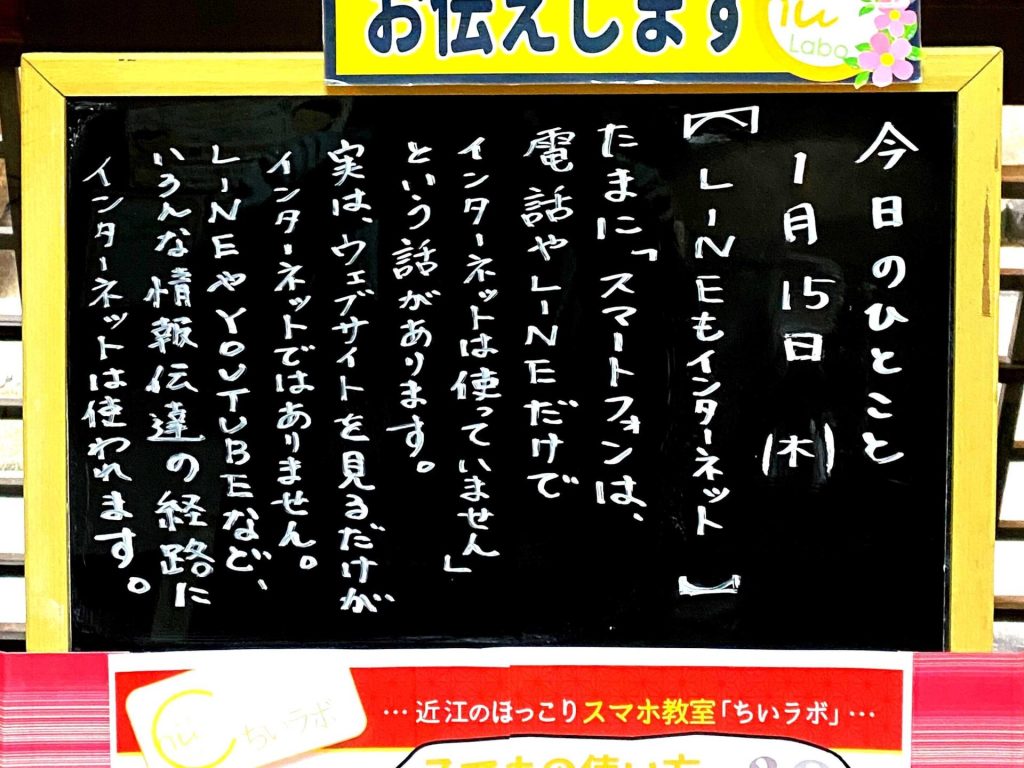 お伝えします
Labo
今日のひとこと
1月15日(木)
【LINEもインターネット】
たまに「スマートフォンは、
電話やLINEだけで
インターネットは使っていません」
という話があります。
実は、ウェブサイトを見るだけが
インターネットではありません。
LINEやYOUTUBEなど、
いろんな情報伝達の経路に
インターネットは使われます。
ちいラボ
…近江のほっこりスマホ教室「ちいラボ」…